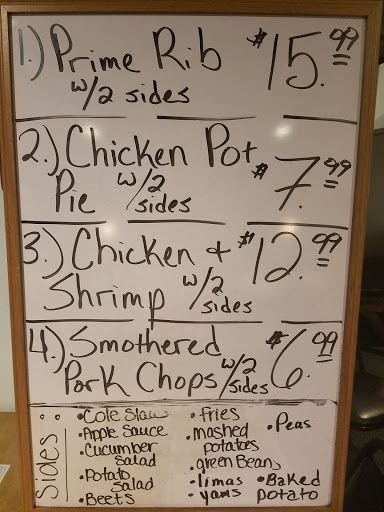 1.) Prime Rib $15.99
w/2 sides
2.) Chicken Pot
Pie w/2 sides $7.99
3.) Chicken + $12.99
Shrimp w/2 sides
4.) Smothered
Pork Chops w/2 sides $6.99
Sides:
• Cole Slaw
• Apple Sauce
• Cucumber
Salad
• Potato
Salad
• Beets
• fries
• mashed
potatoes
• green Beans
• limas
• yams
• Peas
• Baked
potato